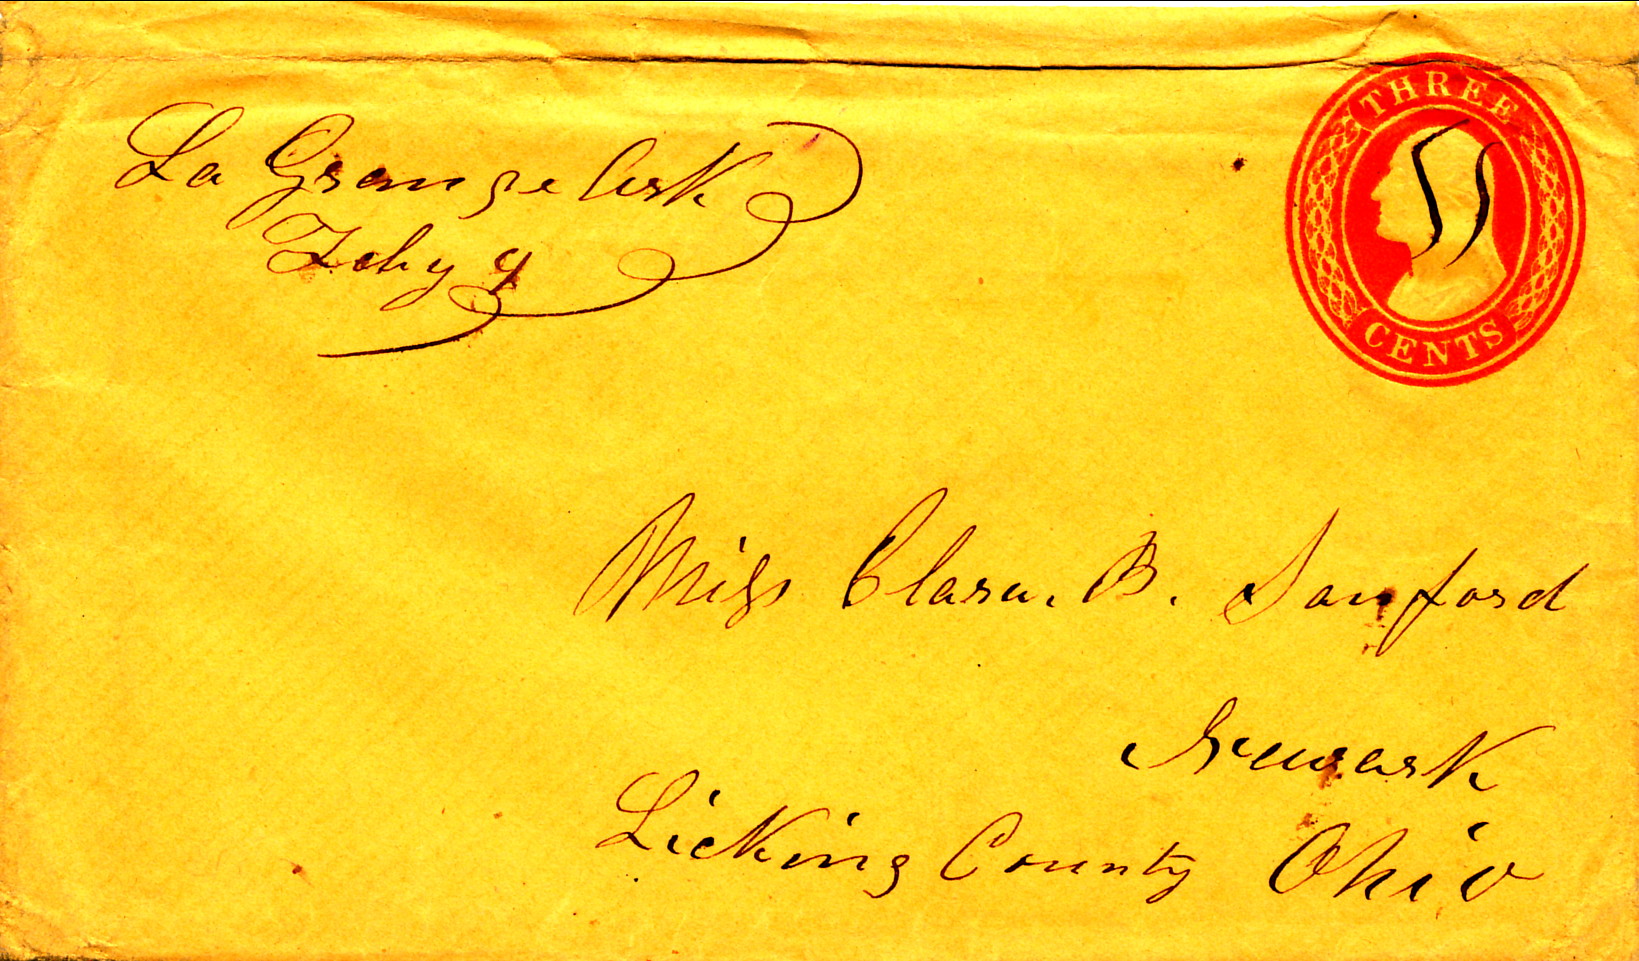 La Grange Ark
Feby 9
THREE
CENTS
Miss Clara. B. Sanford
Newark
Licking County Ohio